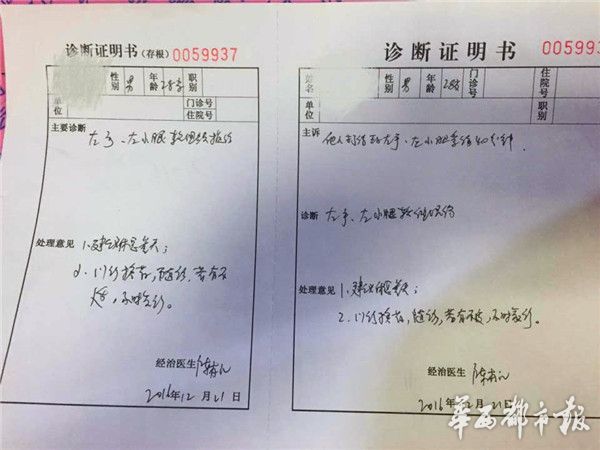 诊断证明书(存根) 0059937
性别 男 年龄 28岁 职别
单位 门诊号
住院号
主要诊断
左手、左小腿软组织挫伤
处理意见 1、建议休息叁天;
2、门诊换药,随诊,若有不
适,不时复诊。
经治医生
2016年12月21日
诊断证明书 005993
姓名 性别 男 年龄 28岁 门诊号 住院号
单位 职别
主诉
他人打伤致左手、左小腿受伤40分钟。
诊断 左手、左小腿软组织挫伤
处理意见 1、建议休息叁天;
2、门诊换药,随诊,若有不适,不时复诊。
经治医生
2016年12月21日
华西都市报